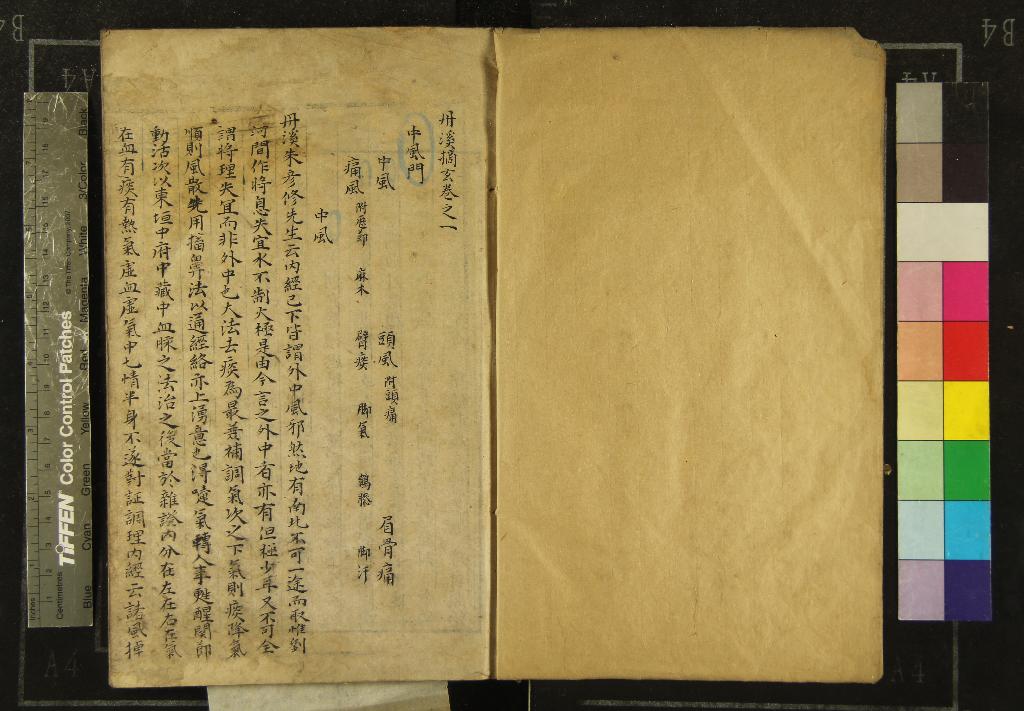 丹溪摘玄卷之一
中風門
中風 頭風附頭痛 眉骨痛
痛風附歷節 麻木 臂痰 脚氣 鶴膝 脚汗
中風
丹溪朱彥修先生云內經已下皆謂外中風邪然地有南北不可一途而取惟劉
河間作將息失宜水不制火極是由今言之外中者亦有但極少耳又不可全
謂將理失宜而非外中也大法去痰為最善補調氣次之下氣則痰降氣
順則風散先用搐鼻法以通經絡亦上湧意也得嚏氣轉人事甦醒関節
動活次以東垣中府中藏中血脉之法治之後當於雜證內分在左在右在氣
在血有痰有熱氣虛血虛氣中七情半身不遂對証調理內經云諸風掉
TIFFEN Color Control Patches
© The Tiffen Company, 2007
Blue Cyan Green Yellow Red Magenta White 3/Color Black
Inches
Centimetres
A4
B4